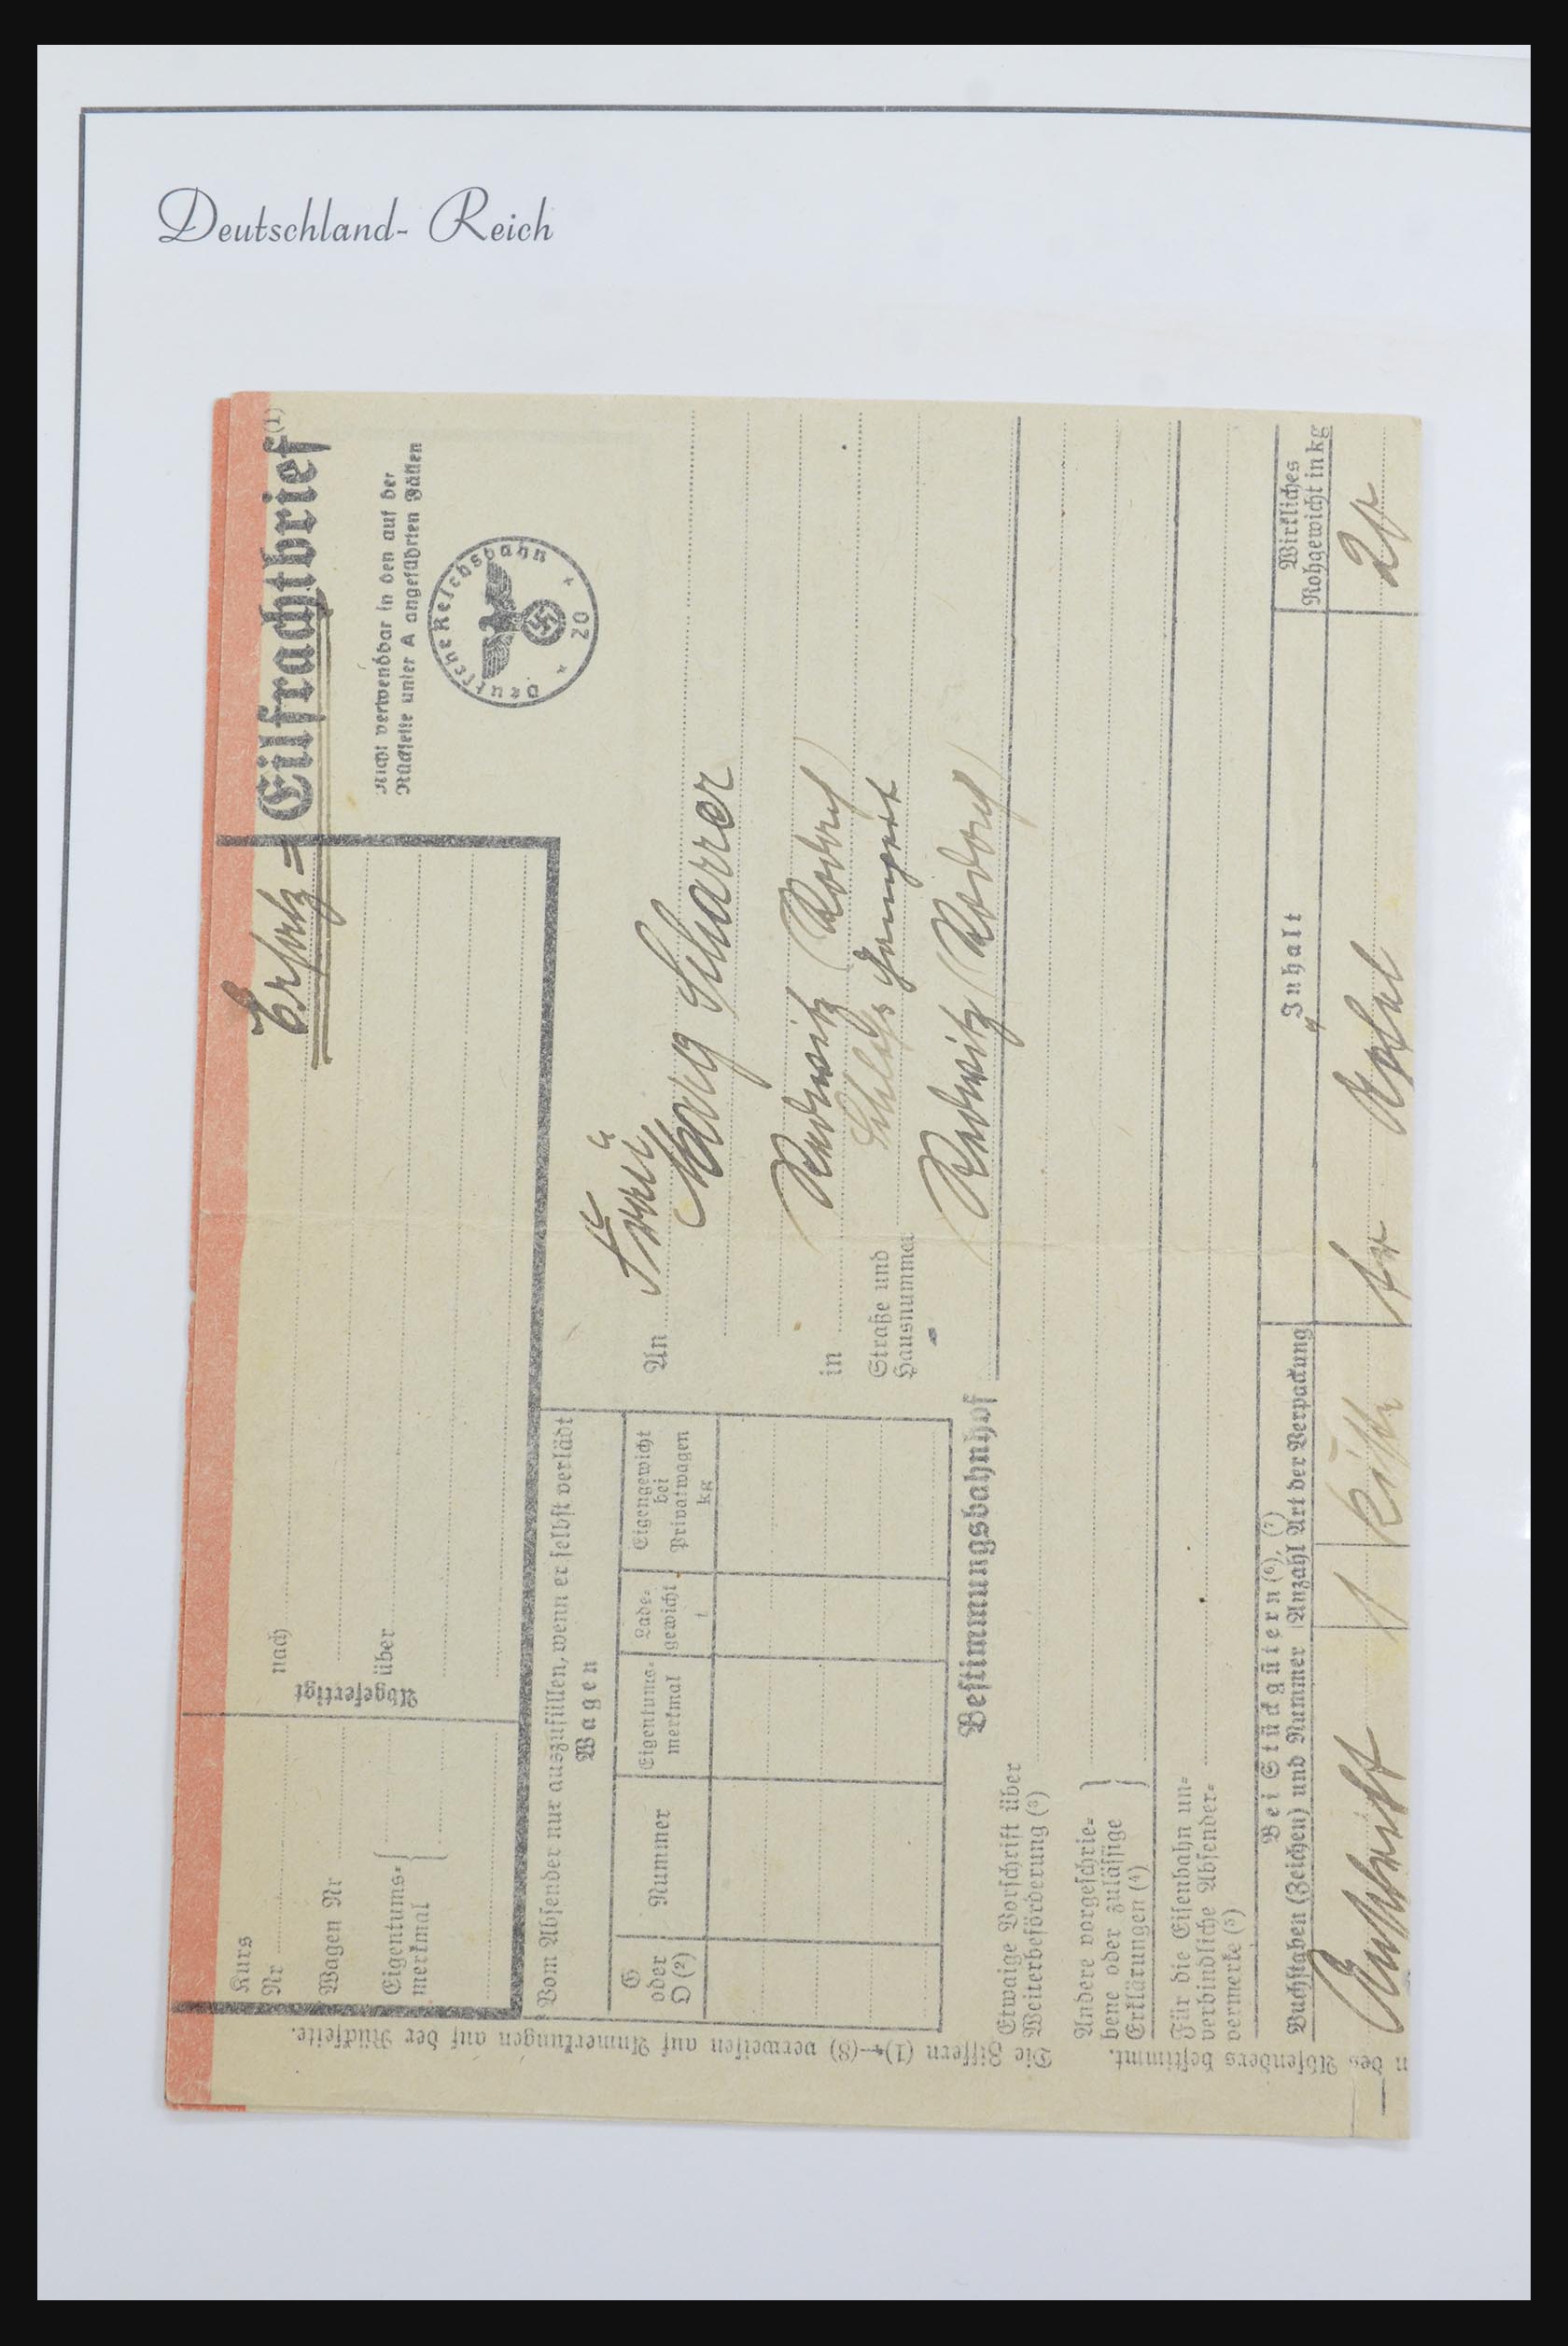 Deutschland- Reich
Ersatz =
Eilfrachtbrief (1)
Nicht verwendbar in den auf der
Rückseite unter A angeführten Fällen
Deutsche Reichsbahn
* 20 *
Kurs
Nr
Wagen Nr
Eigentums-
merkmal
Abgefertigt
nach
über
Vom Absender nur auszufüllen, wenn er selbst verlädt
Wagen
G
oder
O (2)
Nummer
Eigentums-
merkmal
Lade-
gewicht
t
Eigengewicht
bei
Privatwagen
kg
An Frau
Marg Scharrer
in Redwitz (Rodach)
Straße und
Hausnummer
Schloss
Bestimmungsbahnhof
Redwitz (Rodach)
Etwaige Vorschrift über
Weiterbeförderung (3)
Andere vorgeschrie-
bene oder zulässige
Erklärungen (4)
Für die Eisenbahn un-
verbindliche Absender-
vermerke (5)
Bei Stückgütern (6), (7)
Buchstaben (Zeichen) und Nummer
Anzahl
Art der Verpackung
Inhalt
Wirkliches
Rohgewicht in kg
Anschrift
1
Kiste
Äpfel
Die Ziffern (1)–(8) verweisen auf Anmerkungen auf der Rückseite.
n des Absenders bestimmt.